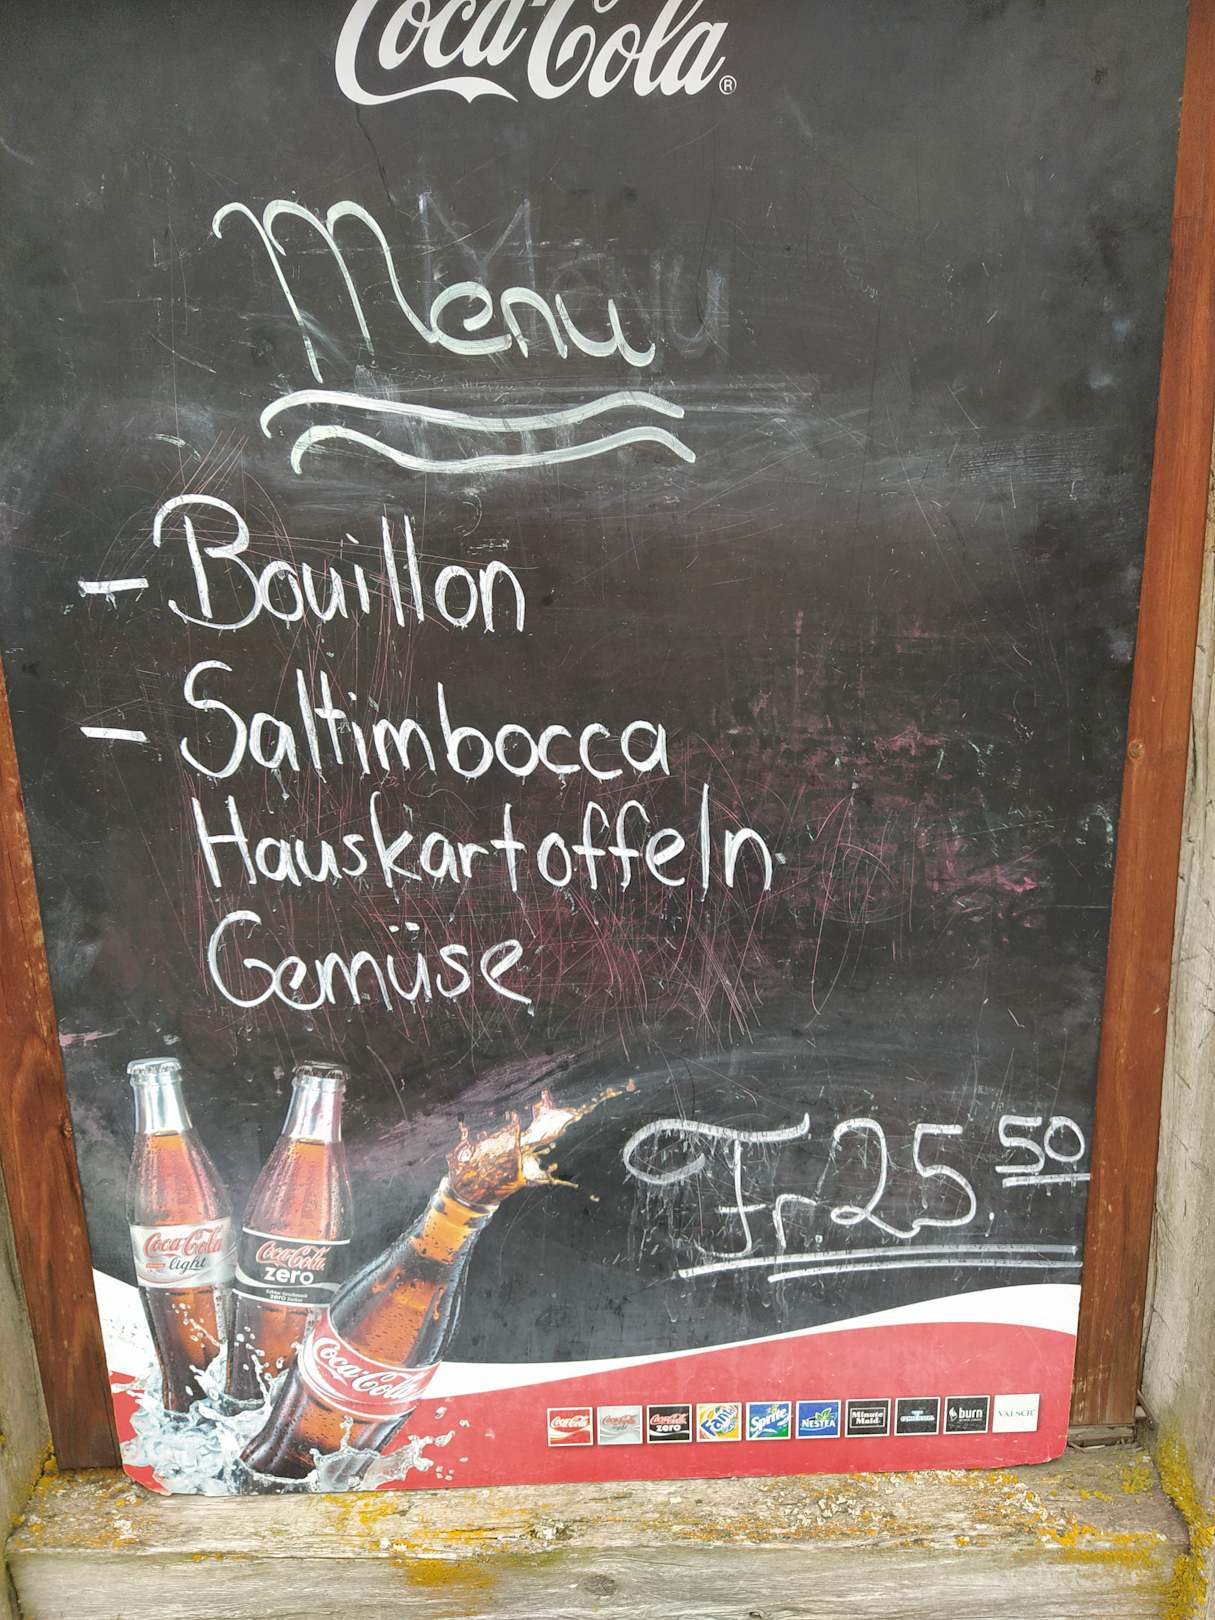 Coca-Cola®
Menu
- Bouillon
- Saltimbocca
Hauskartoffeln
Gemüse
Fr. 25.50
Coca-Cola
light
Coca-Cola
zero
Coca-Cola
Coca-Cola
Coca-Cola
zero
Fanta
Sprite
NESTEA
Minute
Maid
burn
VALSER